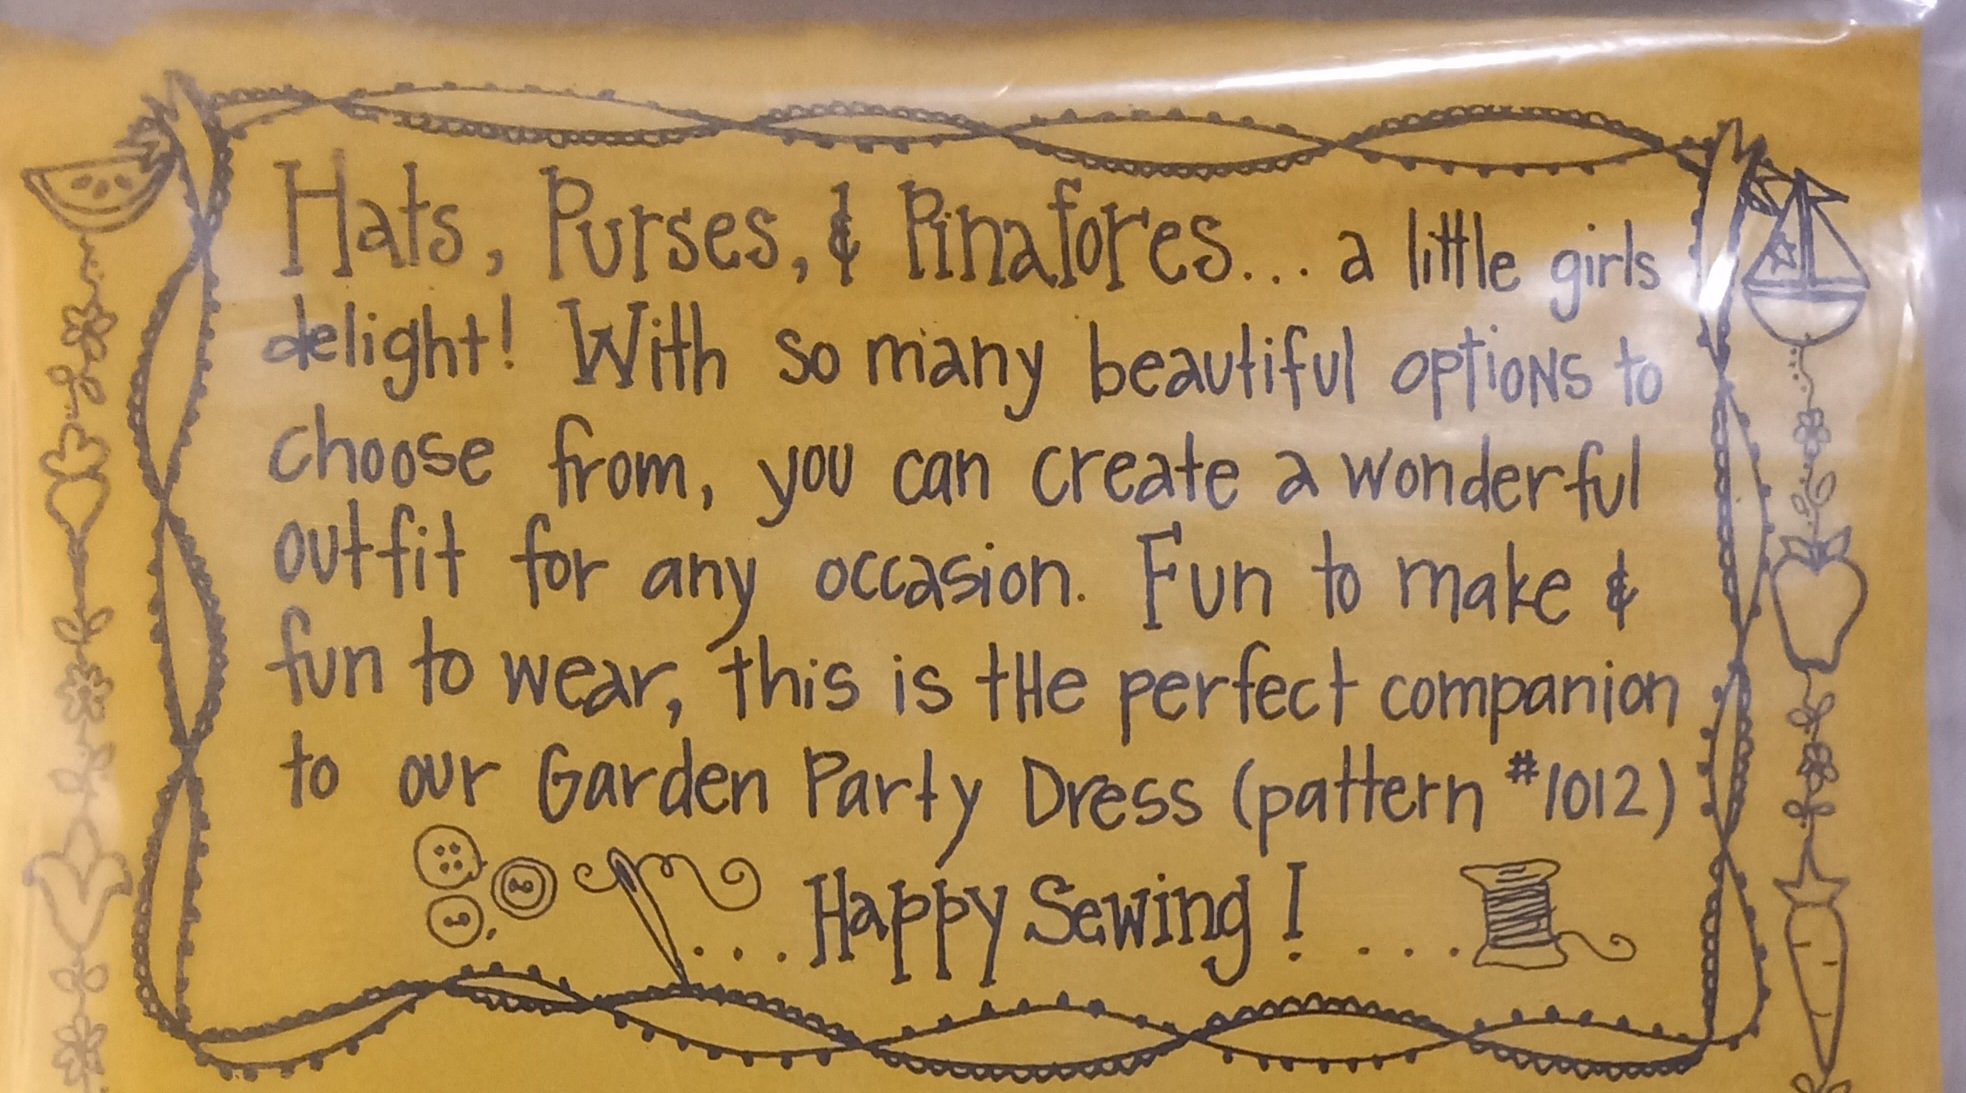 Hats, Purses, & Pinafores... a little girls
delight! With so many beautiful options to
choose from, you can create a wonderful
outfit for any occasion. Fun to make &
fun to wear, this is tHe perfect companion
to our Garden Party Dress (pattern #1012)
... Happy Sewing! ...